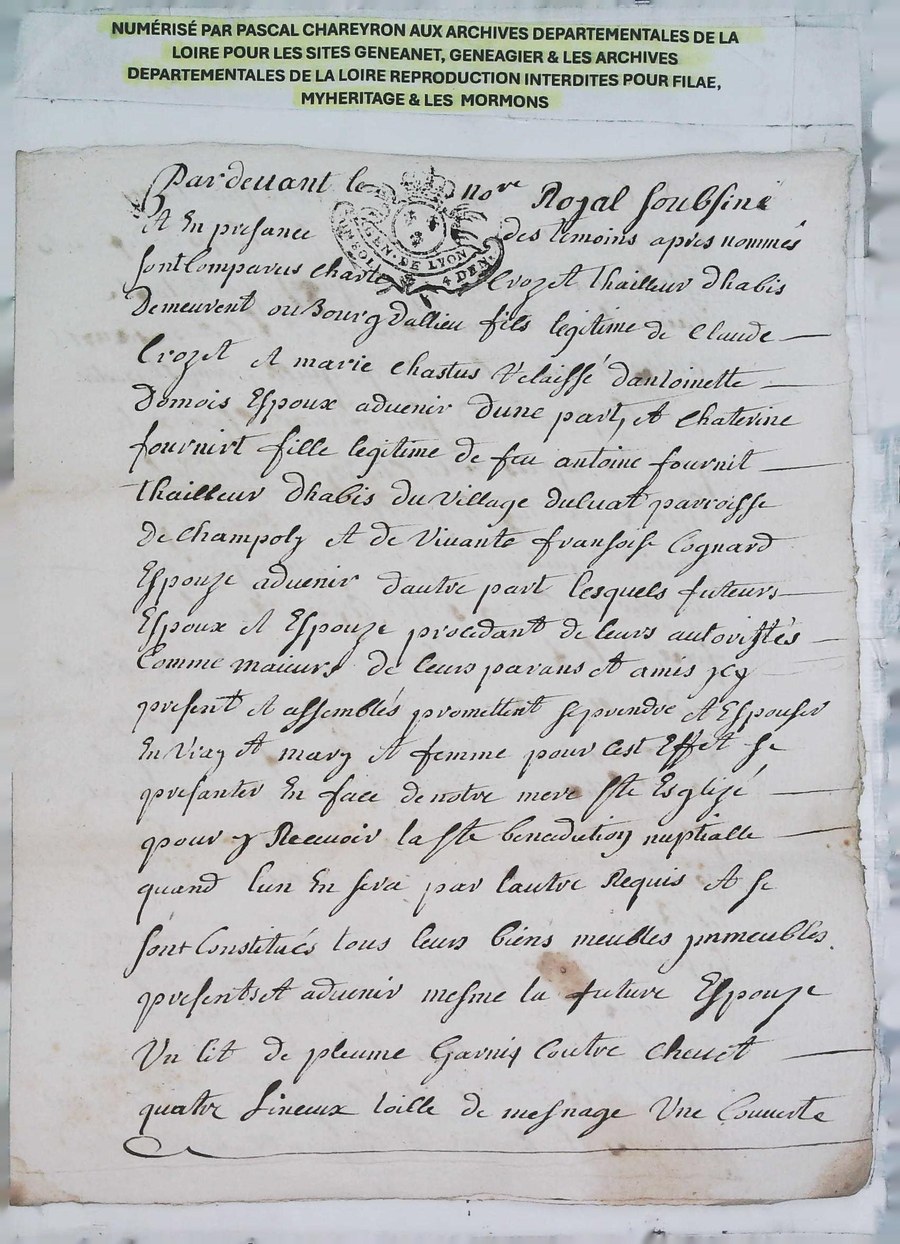 NUMÉRISÉ PAR PASCAL CHAREYRON AUX ARCHIVES DEPARTEMENTALES DE LA
LOIRE POUR LES SITES GENEANET, GENEAGIER & LES ARCHIVES
DEPARTEMENTALES DE LA LOIRE REPRODUCTION INTERDITES POUR FILAE,
MYHERITAGE & LES MORMONS
Par devant le nore Royal soubsiné
GEN. DE LYON
4 DEN.
et En presance des temoins apres nommés
sont Comparus Crozet thailleur dhabis
Demeurent ou Bourg dallieu fils legitime de Claude
Crozet et marie chastus Velaissé dantoinette
Domois Espoux advenir dune part, et Chaterine
fournirt fille legitime de feu antoine fournit
thailleur dhabis du Village duluat parroisse
de Champoly et de Vivante fransoise Cognard
Espouze advenir dautre part lesquels futeurs
Espoux et Espouze procedant de leurs autorisstés
Comme maieurs de leurs parans et amis jcy
present et assemblés promettent se prendre et Espouser
En Vray et mary et femme pour cest Effet se
presanter En face de notre mere ste Esglizé
pour y Recevoir la ste benediction nuptialle
quand lun En sera par lautre Requis et se
sont Constitués tous leurs biens meubles jmmeubles.
presents et advenir mesme la future Espouze
Un lit de pleume Garnis Coutre Chevet
quatre Lineux toille de mesnage Une Couverte